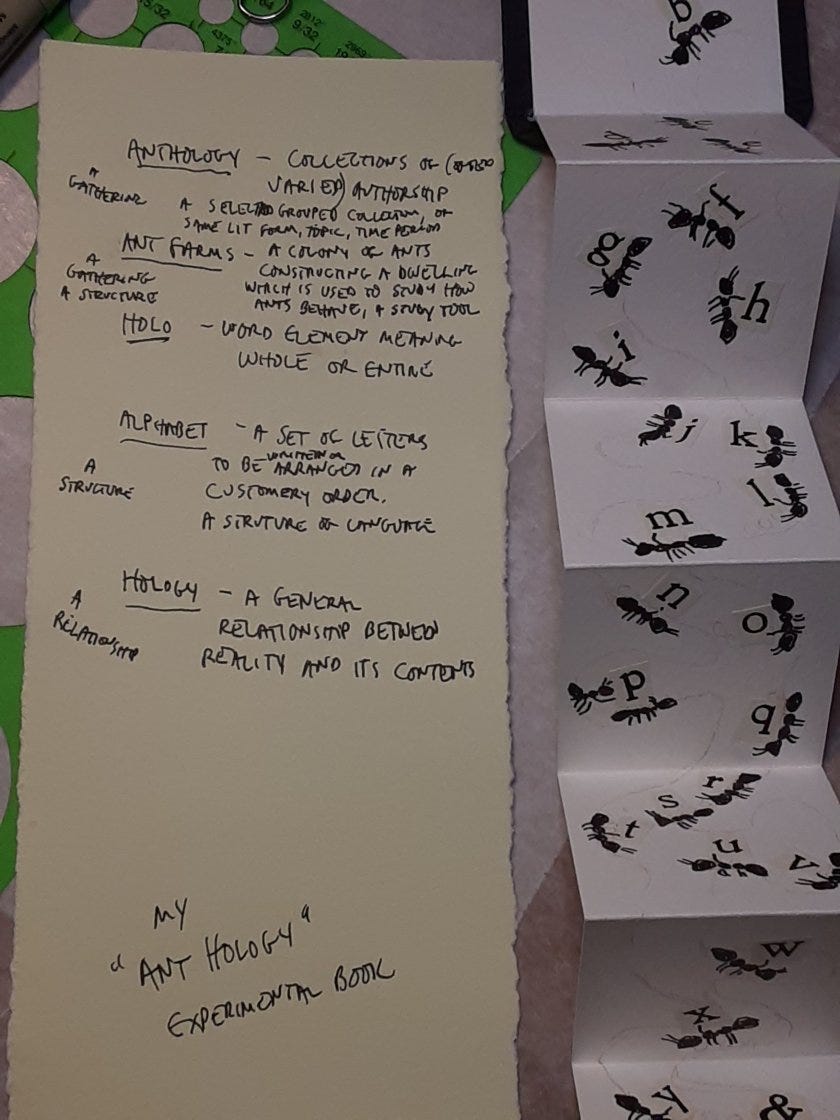 15/32
64
4375
2812
9/32
2969
19
ANTHOLOGY – COLLECTIONS OF (OFTEN
VARIED) AUTHORSHIP
A
GATHERING
A SELECTED GROUPED COLLECTION, OF
SAME LIT FORM, TOPIC, TIME PERIOD
ANT FARMS – A COLONY OF ANTS
A
GATHERING
A STRUCTURE
CONSTRUCTING A DWELLING
WHICH IS USED TO STUDY HOW
ANTS BEHAVE, A STUDY TOOL
HOLO – WORD ELEMENT MEANING
WHOLE OR ENTIRE
ALPHABET – A SET OF LETTERS
WRITTEN OR
TO BE ARRANGED IN A
A
STRUCTURE
CUSTOMERY ORDER.
A STRUTURE OF LANGUAGE
HOLOGY – A GENERAL
A
RELATIONSHIP
RELATIONSHIP BETWEEN
REALITY AND ITS CONTENTS
MY
"ANT HOLOGY"
EXPERIMENTAL BOOK
f
g
h
i
j k
l
m
n
o
p
q
r
s
t
u
v
w
x
y &